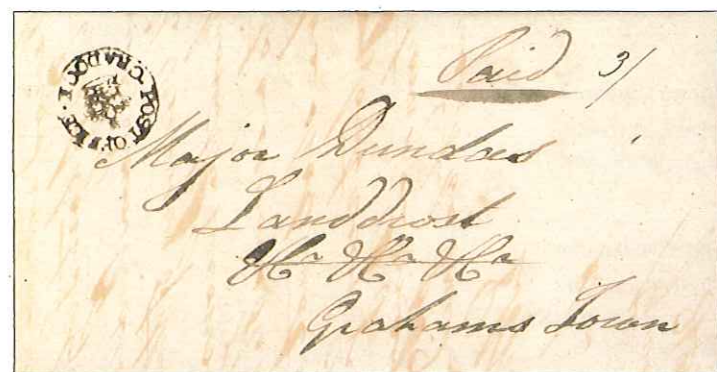 Paid 3/
POST OFFICE · CRADOCK ·
Major Dundas
Landdrost
&c &c &c
Grahams Town